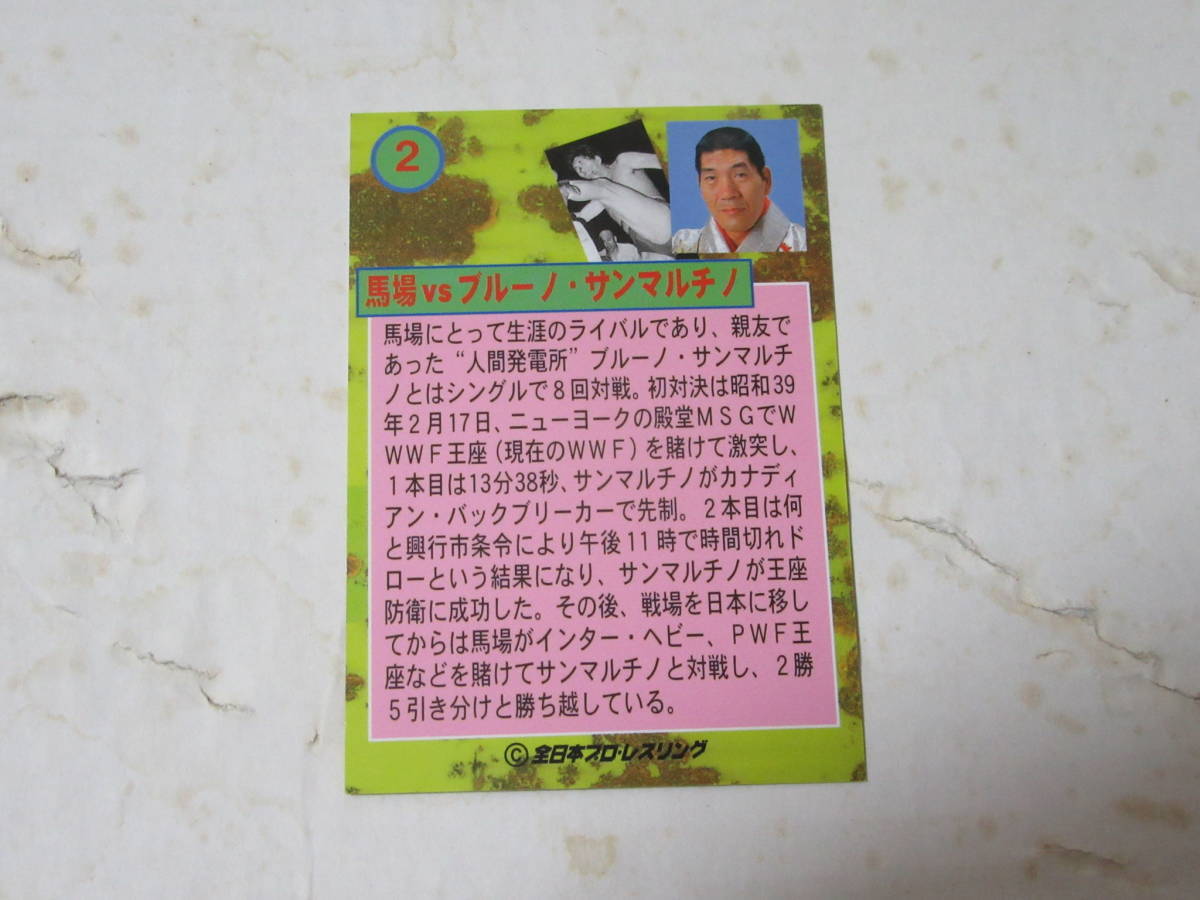 2
馬場vsブルーノ・サンマルチノ
馬場にとって生涯のライバルであり、親友で
あった“人間発電所”ブルーノ・サンマルチ
ノとはシングルで8回対戦。初対決は昭和39
年2月17日、ニューヨークの殿堂MSGでW
WWF王座(現在のWWF)を賭けて激突し、
1本目は13分38秒、サンマルチノがカナディ
アン・バックブリーカーで先制。2本目は何
と興行市条令により午後11時で時間切れド
ローという結果になり、サンマルチノが王座
防衛に成功した。その後、戦場を日本に移し
てからは馬場がインター・ヘビー、PWF王
座などを賭けてサンマルチノと対戦し、2勝
5引き分けと勝ち越している。
©全日本プロ・レスリング